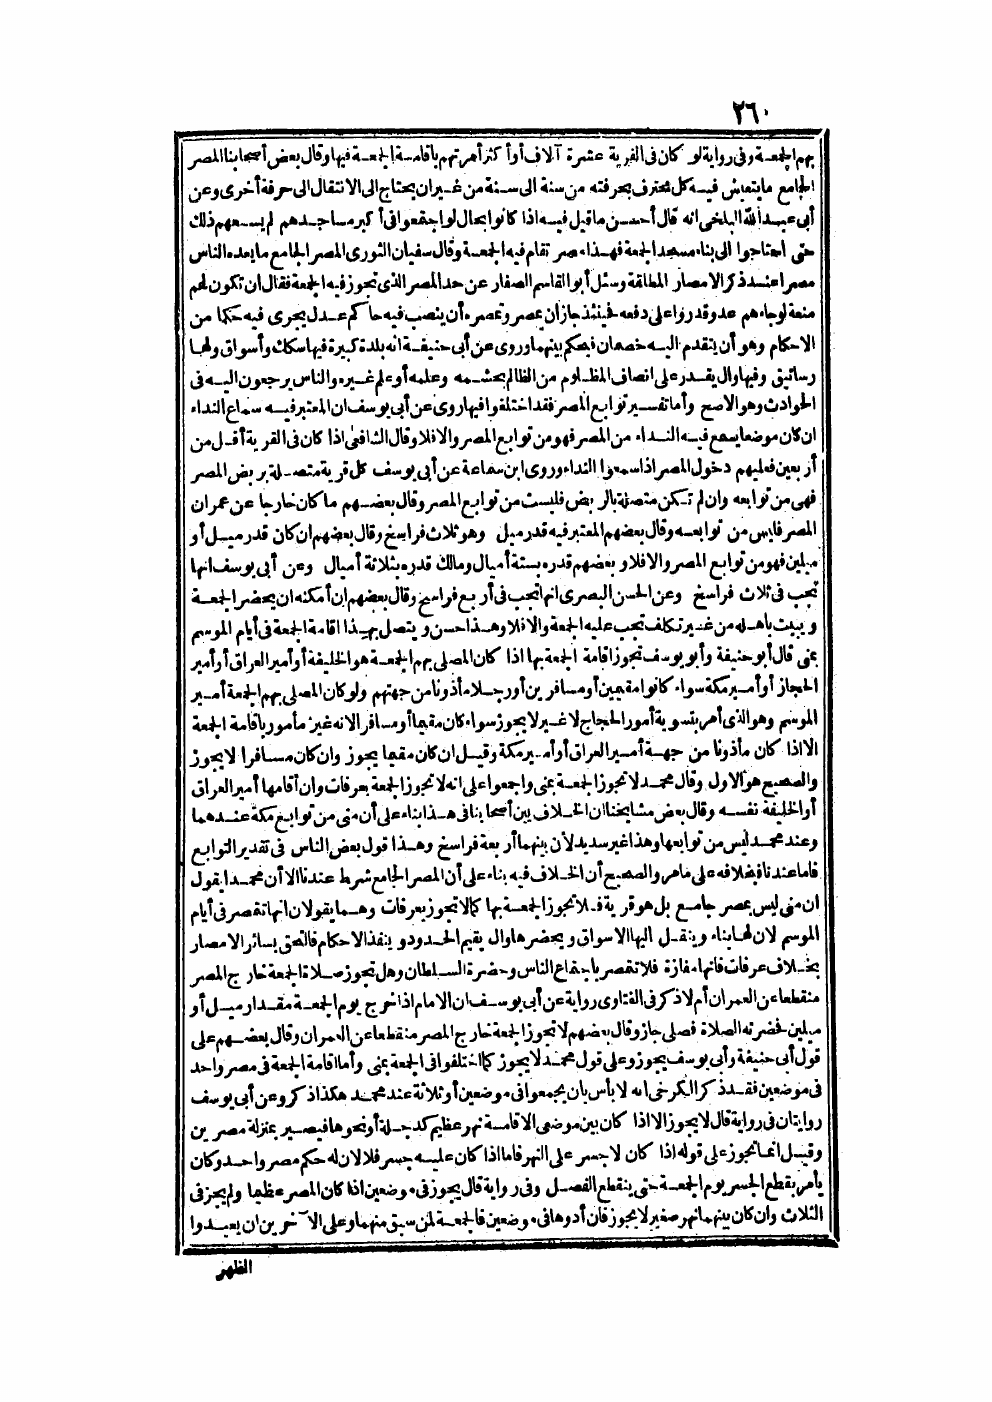 ٢٦٠
بهم الجمعة وفى رواية لو كان فى القرية عشرة آلاف أو أكثر أمرتهم باقامة الجمعة فيها وقال بعض أصحابنا المصر
الجامع ما يتعايش فيه كل محترف بحرفته من سنة الى سنة من غير ان يحتاج الى الانتقال الى حرفة أخرى وعن
أبى عبد الله البلخى انه قال أحسن ما قيل فيه اذا كانوا بحال لو اجتمعوا فى أكبر مساجدهم لم يسعهم ذلك
حتى احتاجوا الى بناء مسجد الجمعة فهذا مصر تقام فيه الجمعة وقال سفيان الثورى المصر الجامع ما يعده الناس
مصرا عند ذكر الامصار المطلقة وسئل أبو القاسم الصفار عن حد المصر الذى تجوز فيه الجمعة فقال ان تكون لهم
منعة لو جاءهم عدو قدروا على دفعه فحينئذ جاز أن يمصر وتمصره أن ينصب فيه حاكم عدل يجرى فيه حكما من
الاحكام وهو أن يتقدم اليه خصمان فيحكم بينهما وروى عن أبى حنيفة انه بلدة كبيرة فيها سكك وأسواق ولها
رساتيق وفيها وال يقدر على انصاف المظلوم من الظالم بحشمه وعلمه أو علم غيره والناس يرجعون اليه فى
الحوادث وهو الاصح وأما تفسير توابع المصر فقد اختلفوا فيها روى عن أبى يوسف ان المعتبر فيه سماع النداء
ان كان موضعا يسمع فيه النداء من المصر فهو من توابع المصر والا فلا وقال الشافعى اذا كان فى القرية أقل من
أربعين فعليهم دخول المصر اذا سمعوا النداء وروى ابن سماعة عن أبى يوسف كل قرية متصلة بربض المصر
فهى من توابعه وان لم تكن متصلة بالربض فليست من توابع المصر وقال بعضهم ما كان خارجا عن عمران
المصر فليس من توابعه وقال بعضهم المعتبر فيه قدر ميل وهو ثلاث فراسخ وقال بعضهم ان كان قدر ميل أو
ميلين فهو من توابع المصر والا فلا وبعضهم قدره بستة أميال ومالك قدره بثلاثة أميال وعن أبى يوسف انها
تجب فى ثلاث فراسخ وعن الحسن البصرى انها تجب فى أربع فراسخ وقال بعضهم إن أمكنه ان يحضر الجمعة
ويبيت باهله من غير تكلف تجب عليه الجمعة والا فلا وهذا حسن ويتصل بهذا اقامة الجمعة فى أيام الموسم
بمنى قال أبو حنيفة وأبو يوسف تجوز اقامة الجمعة بها اذا كان المصلى بهم الجمعة هو الخليفة أو أمير العراق أو أمير
الحجاز أو أمير مكة سواء كانوا مقيمين أو مسافرين أو رجلا مأذونا من جهتهم ولو كان المصلى بهم الجمعة أمير
الموسم وهو الذى أمر بتسوية أمور الحجاج لا غير لا يجوز سواء كان مقيما أو مسافرا لانه غير مأمور باقامة الجمعة
الا اذا كان مأذونا من جهة أمير العراق أو أمير مكة وقيل ان كان مقيما يجوز وان كان مسافرا لا يجوز
والصحيح هو الاول وقال محمد لا تجوز الجمعة بمنى واجمعوا على انه لا تجوز الجمعة بعرفات وان أقامها أمير العراق
أو الخليفة نفسه وقال بعض مشايخنا ان الخلاف بين أصحابنا فى هذا بناء على أن منى من توابع مكة عندهما
وعند محمد ليس من توابعها وهذا غير سديد لأن بينهما أربعة فراسخ وهذا قول بعض الناس فى تقدير التوابع
فاما عندنا فبخلافه على ما مر والصحيح أن الخلاف فيه بناء على أن المصر الجامع شرط عندنا الا أن محمدا يقول
ان منى ليس بمصر جامع بل هو قرية فلا تجوز الجمعة بها كما لا تجوز بعرفات وهما يقولان انها تتمصر فى أيام
الموسم لان لها بناء وينقل اليها الاسواق ويحضرها وال يقيم الحدود وينفذ الاحكام فالتحق بسائر الامصار
بخلاف عرفات فانها مفازة فلا تتمصر باجتماع الناس وحضرة السلطان وهل تجوز صلاة الجمعة خارج المصر
منقطعا عن العمران أم لا ذكر فى الفتاوى رواية عن أبى يوسف ان الامام اذا خرج يوم الجمعة مقدار ميل أو
ميلين فحضرته الصلاة فصلى جاز وقال بعضهم لا تجوز الجمعة خارج المصر منقطعا عن العمران وقال بعضهم على
قول أبى حنيفة وأبى يوسف يجوز وعلى قول محمد لا يجوز كما اختلفوا فى الجمعة بمنى وأما اقامة الجمعة فى مصر واحد
فى موضعين فقد ذكر الكرخى انه لا بأس بان يجمعوا فى موضعين أو ثلاثة عند محمد هكذا ذكر وعن أبى يوسف
روايتان فى رواية قال لا يجوز الا اذا كان بين موضعى الاقامة نهر عظيم كدجلة أو نحوها فيصير بمنزلة مصرين
وقيل انما تجوز على قوله اذا كان لا جسر على النهر فاما اذا كان عليه جسر فلا لان له حكم مصر واحد وكان
يأمر بقطع الجسر يوم الجمعة حتى ينقطع الفصل وفى رواية قال يجوز فى موضعين اذا كان المصر عظيما ولم يجز فى
الثلاث وان كان بينهما نهر صغير لا يجوز فان أدوها فى موضعين فالجمعة لمن سبق منهما وعلى الآخرين ان يعيدوا
الظهر